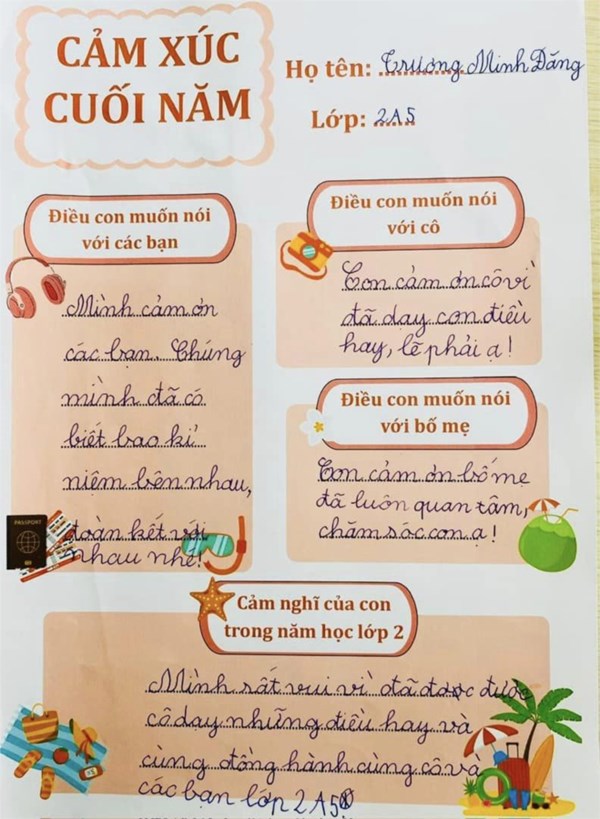 CẢM XÚC
CUỐI NĂM
Họ tên: Trương Minh Đăng
Lớp: 2A5
Điều con muốn nói
với các bạn
Mình cảm ơn
các bạn. Chúng
mình đã có
biết bao kỉ
niệm bên nhau,
đoàn kết với
nhau nhé!
Điều con muốn nói
với cô
Con cảm ơn cô vì
đã dạy con điều
hay, lẽ phải ạ!
Điều con muốn nói
với bố mẹ
Con cảm ơn bố mẹ
đã luôn quan tâm,
chăm sóc con ạ!
PASSPORT
Cảm nghĩ của con
trong năm học lớp 2
Mình rất vui vì đã được được
cô dạy những điều hay và
cùng đồng hành cùng cô và
các bạn lớp 2A5